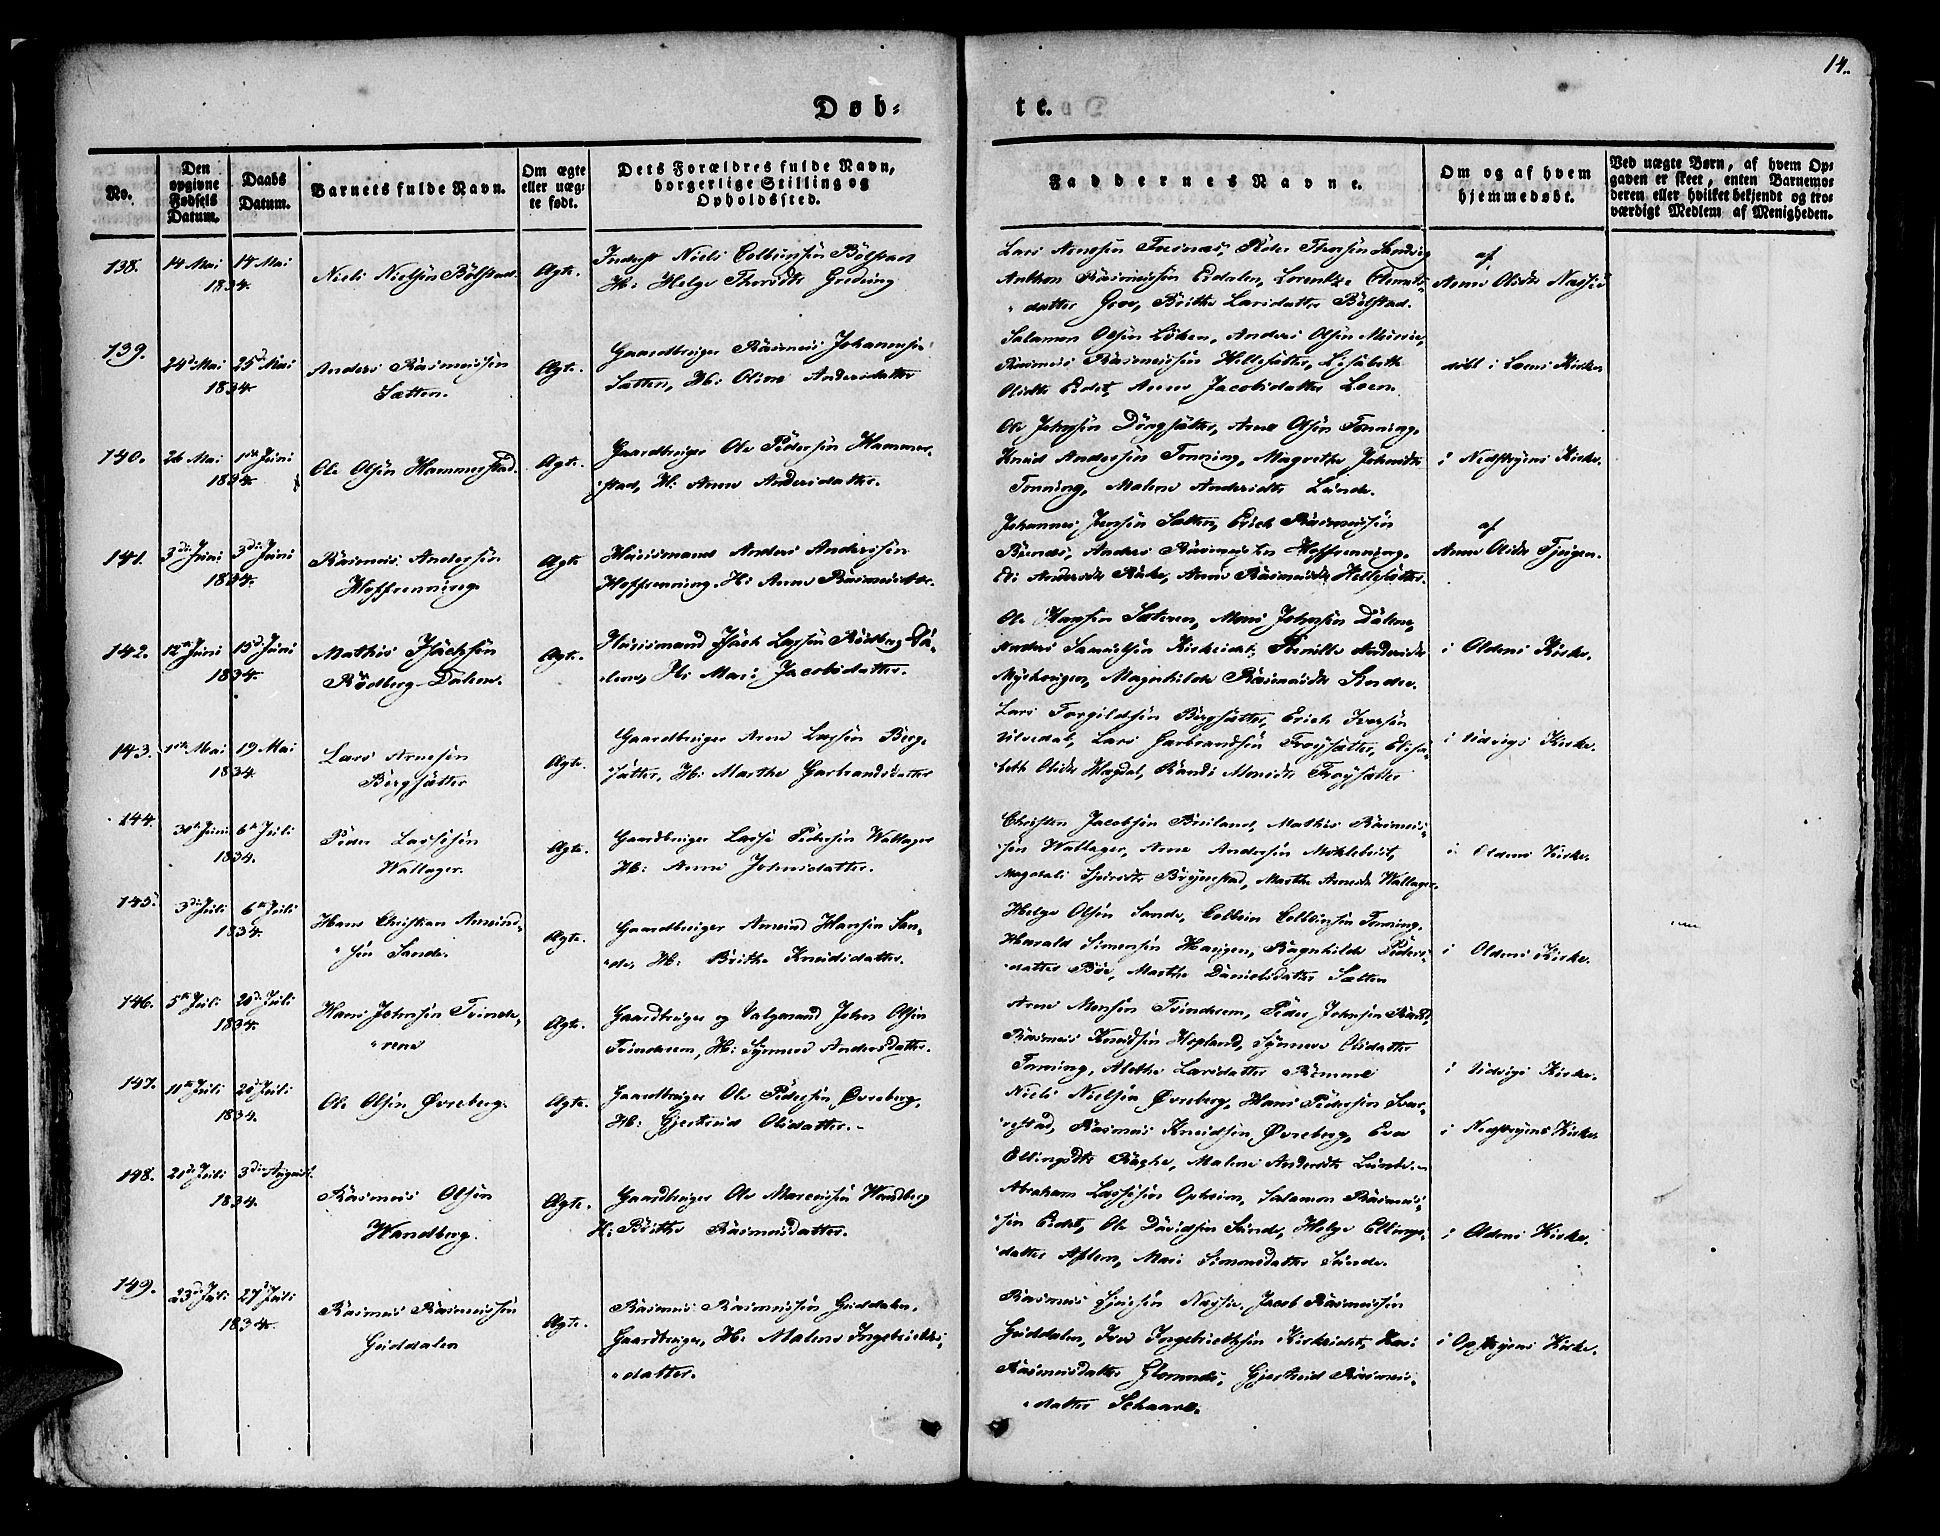 14.
Døb=
te.
No.
Den opgivne Fødsels Datum.
Daabs Datum.
Barnets fulde Navn.
Om ægte eller uægte født.
Dets Forældres fulde Navn, borgerlige Stilling og Opholdssted.
Faddernes Navne.
Om og af hvem hjemmedøbt.
Ved uægte Børn, af hvem Opgaven er skeet, enten Barnemoderen eller hvilket bekjendt og troværdigt Medlem af Menigheden.
138. 14 Mai 17 Mai
1834.
Niels Nielsen Bølstad. Ægte.
Inderst Niels Colbensen Bølstad
H: Helge Thersdtr
Lars Arnesen Tresnæs, Peder Thersen
Anthon Rasmussen Eidalen, Lorentze Clemets-
datter Grov, Brithe Larsdatter Bølstad.
af
Anne Olsdtr Næsje
139. 24de Mai 25de Mai
1834.
Anders Rasmussen
Sætten.
Ægte.
Gaardbruger Rasmus Johannesen
Sætten, H: Oline Andersdatter
Salamon Olsen Løken, Anders Olsen
Rasmus Rasmussen Hellesætter, Lisabeth
Olsdtr Eidet, Anne Jacobsdatter Loen.
døbt i Loens Kirke
140. 26 Mai 1ste Juni
1834.
Ole Olsen Hammerstad. Ægte.
Gaardbruger Ole Pedersen Hammer-
stad, H: Anne Andersdatter.
Ole Johnsen Dørgsætter, Arne Olsen Tonning,
Knud Andersen Tonning, Magrethe Johnsdtr
Tonning, Malene Andersdtr Lunde.
i Nedstryens Kirke.
141. 3die Juni 3die Juni
1834.
Rasmus Andersen
Hoffrenning.
Ægte
Huusmand Anders Andersen
Hoffrenning. H: Anne Rasmusdtr.
Johannes Jensen Sætten, Erich Rasmussen
Anders Rasmussen Hoffrenning,
Andersdtr Rake, Anne Rasmusdtr Hellesætter.
af
Anne Olsdtr Tjugen.
142. 12te Juni 15de Juni
1834.
Mathis Isachsen
Rødberg-Dalen.
Ægte.
Huusmand Isach Larsen Rødberg Da-
len, H: Mari Jacobsdatter.
Ole Hansen Sæteren, Mons Johnsen Dalen,
Anders Samuelsen Kirkeidet, Pernille Andersdtr
Myklevigen, Magnhilde Rasmusdtr
i Oldens Kirke.
143. 1ste Mai 19 Mai
1834.
Lars Arnesen
Bergsætter
Ægte.
Gaardbruger Arne Larsen Berg-
sætter, H: Marthe Garbrandsdatter
Lars Torgildsen Bergsætter, Erich Iversen
Ulvedal, Lars Garbrandsen Frøysætter, Elisa-
beth Olsdtr Hægdal, Randi Monsdtr Frøysætter
i Udvigs Kirke.
144. 30te Juni 6te Juli
1834.
Peder Lassesen
Wallager.
Ægte.
Gaardbruger Lasse Pedersen Wallager
H: Anne Johnsdatter.
Christen Jacobsen Briland, Mathis Rasmus-
sen Wallager, Arne Andersen Møklebust,
Magdali Sjursdtr Brynestad, Marthe Arnesdtr Wallager.
i Oldens Kirke.
145. 3die Juli 6te Juli
1834.
Hans Christian Amund-
sen Sande.
Ægte.
Gaardbruger Amund Hansen San-
de, H: Brithe Knudsdatter.
Helge Olsen Sande, Colbein Colbensen Tonning,
Harald Simensen Haugen, Ragnhilde Peders-
datter Bøe, Marthe Danielsdatter Sætten
i Oldens Kirke.
146. 5te Juli 20de Juli
1834.
Hans Johnsen Tvinde-
rene
Ægte.
Gaardbruger og Valgmand John Olsen
Tvinderem, H: Synneve Andersdatter.
Arne Monsen Tvinderem, Peder Johnsen
Rasmus Knudsen Hopland, Synneve Olsdatter
Tonning, Alethe Larsdatter Rømme
i Udvigs Kirke.
147. 11te Juli 20de Juli
1834.
Ole Olsen Øvreberg. Ægte.
Gaardbruger Ole Pedersen Øvreberg,
H: Gjertrud Olsdatter.-
Niels Nielsen Øvreberg, Hans Pedersen Svar-
restad, Rasmus Knudsen Øvreberg, Eva
Ellingsdtr Raghe, Malene Andersdtr Lunde.-
i Nedstryens Kirke
148. 21de Juli 3die August.
1834.
Rasmus Olsen
Wandberg.
Ægte.
Gaardbruger Ole Marcussen Wandberg
H: Brithe Rasmusdatter.
Abraham Lassesen Opheim, Salamon Rasmus-
sen Eidet, Ole Davidsen Sunde, Helge Ellings-
datter Aflem, Mari Simonsdatter Sunde.
i Oldens Kirke.
149. 23de Juli 27de Juli
1834.
Rasmus Rasmussen
Guddalen
Ægte.
Rasmus Rasmussen Guddalen,
Gaardbruger, H: Malene Ingebrictds-
datter.
Rasmus Sjursen Næsje. Jacob Rasmussen
Guddalen, Iver Ingebrictsen Kirkeidet, Kari
Rasmusdatter Glomnæs, Gjertrud Rasmus-
datter Schaare.
i Opstryens Kirke.